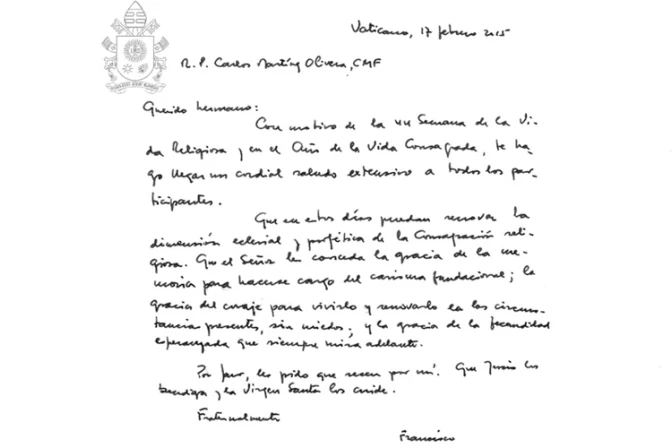 Vaticano, 17 febrero 2015
R. P. Carlos Martínez Olivera, CMF
Querido hermano:
Con motivo de la Semana de la Vi-
da Religiosa y en el Año de la Vida Consagrada, te ha-
go llegar un cordial saludo extensivo a todos los par-
ticipantes.
Que en estos días puedan renovar la
dimensión eclesial y profética de la Consagración reli-
giosa. Que el Señor les conceda la gracia de la me-
moria para hacerse cargo del carisma fundacional; la
gracia del coraje para vivirlo y renovarlo en las circuns-
tancias presentes, sin miedos; y la gracia de la fecundidad
esperanzada que siempre mira adelante.
Por favor, les pido que recen por mí. Que Jesús los
bendiga y la Virgen Santa los cuide.
Fraternalmente
Francisco